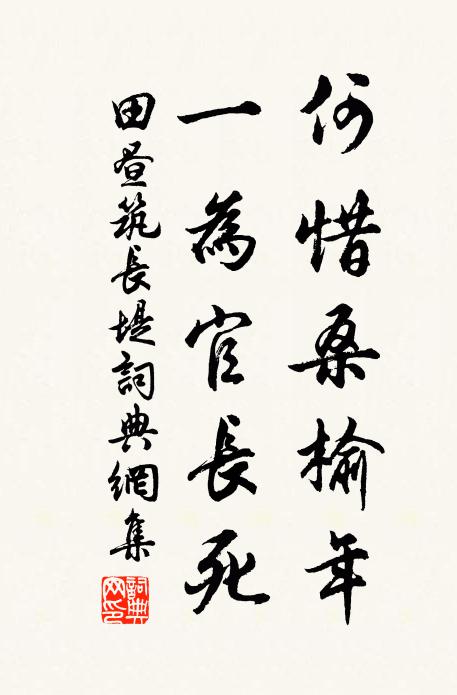 何惜桑榆年
一為官長死
田晝筑長堤詞典網集
詞典網印